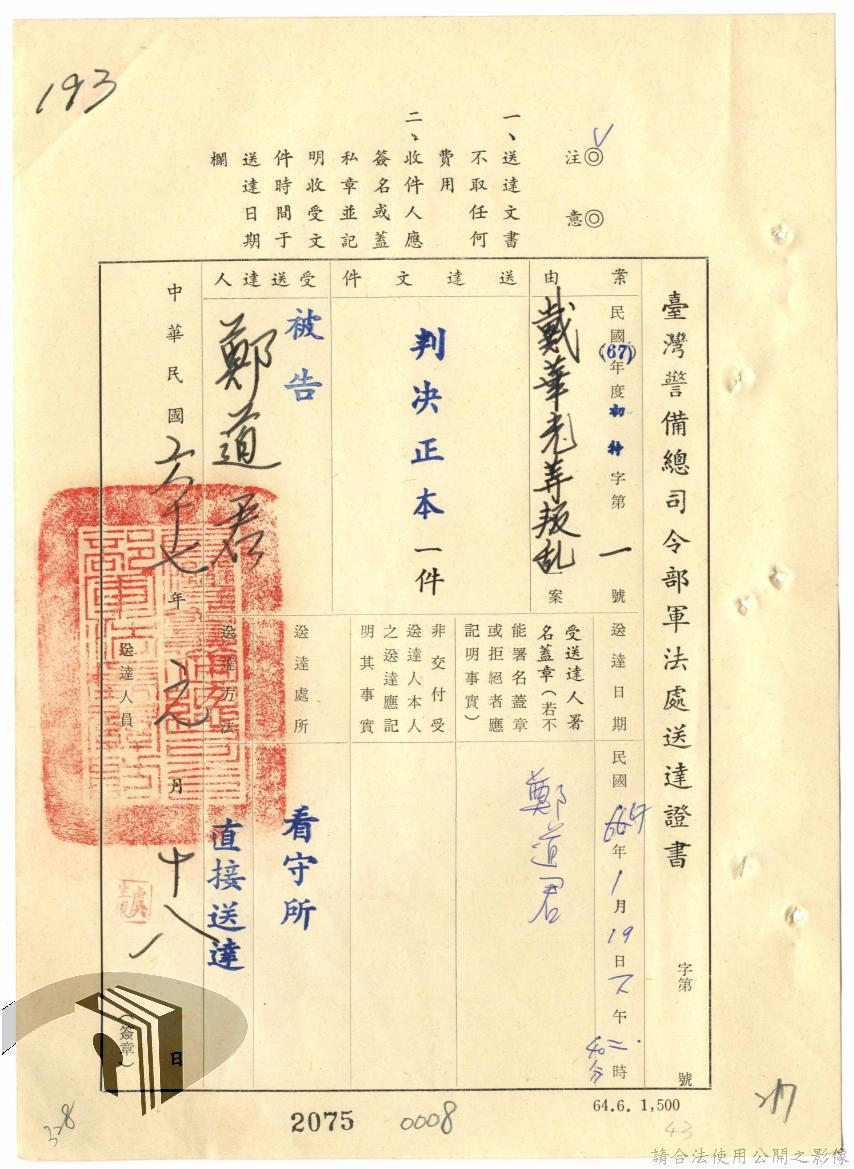 193
注意
◎◎
一、送達文書
不取任何
費用
二、收件人應
簽名或蓋
私章並記
明收受文
件時間于
送達日期
欄
臺灣警備總司令部軍法處送達證書
字第 號
案由
民國(67)年度初特字第一號
戴華光等叛乱
案
送達文件
判決正本一件
受送達人
被告
鄭道君
送達日期
民國
年1月19日下午二時
40分
受送達人署
名蓋章(若不
能署名蓋章
或拒絕者應
記明事實)
鄭道君
非交付受
送達人本人
之送達應記
明其事實
送達處所
看守所
送達方法
直接送達
中華民國六十七年元月十八日
送達人員
(簽章)
64.6. 1,500
2075
0008
43
請合法使用公開之影像